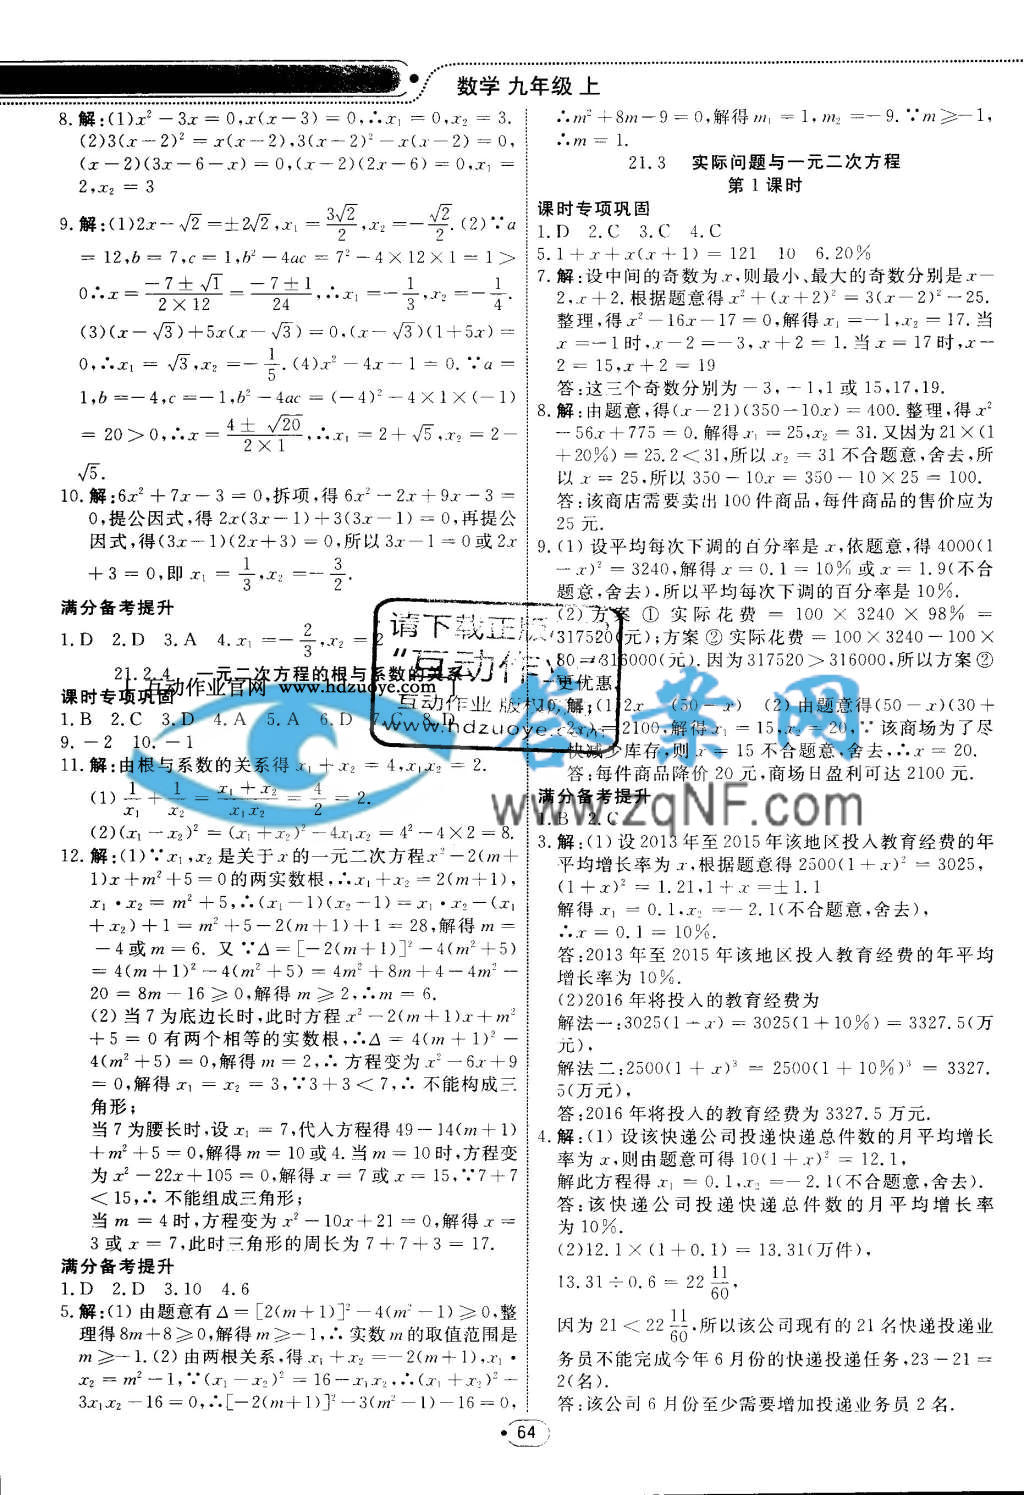 数学 九年级 上
8. 解:(1)x²－3x＝0,x(x－3)＝0,∴x₁＝0,x₂＝3.
(2)3(x－2)²＝x(x－2),3(x－2)²－x(x－2)＝0,
(x－2)(3x－6－x)＝0,(x－2)(2x－6)＝0,x₁＝
2,x₂＝3
9. 解:(1)2x－√2＝±2√2,x₁＝3√2/2,x₂＝－√2/2.(2)∵a
＝12,b＝7,c＝1,b²－4ac＝7²－4×12×1＝1＞
0∴x＝(－7±√1)/(2×12)＝(－7±1)/24,∴x₁＝－1/3,x₂＝－1/4.
(3)(x－√3)＋5x(x－√3)＝0,(x－√3)(1＋5x)＝
0,∴x₁＝√3,x₂＝－1/5.(4)x²－4x－1＝0.∵a＝
1,b＝－4,c＝－1,b²－4ac＝(－4)²－4×1×(－1)
＝20＞0,∴x＝(4±√20)/(2×1),∴x₁＝2＋√5,x₂＝2－
√5.
10. 解:6x²＋7x－3＝0,拆项,得6x²－2x＋9x－3＝
0,提公因式,得2x(3x－1)＋3(3x－1)＝0,再提公
因式,得(3x－1)(2x＋3)＝0,所以3x－1＝0或2x
＋3＝0,即x₁＝1/3,x₂＝－3/2.
满分备考提升
1. D 2. D 3. A 4. x₁＝－2/3,x₂＝2
21.2.4 一元二次方程的根与系数的关系
课时专项巩固
1. B 2. C 3. D 4. A 5. A 6. D 7. C 8. D
9. －2 10. －1
11. 解:由根与系数的关系得x₁＋x₂＝4,x₁x₂＝2.
(1)1/x₁＋1/x₂＝(x₁＋x₂)/(x₁x₂)＝4/2＝2.
(2)(x₁－x₂)²＝(x₁＋x₂)²－4x₁x₂＝4²－4×2＝8.
12. 解:(1)∵x₁,x₂是关于x的一元二次方程x²－2(m＋
1)x＋m²＋5＝0的两实数根,∴x₁＋x₂＝2(m＋1),
x₁·x₂＝m²＋5,∴(x₁－1)(x₂－1)＝x₁·x₂－(x₁
＋x₂)＋1＝m²＋5－2(m＋1)＋1＝28,解得m＝
－4或m＝6. 又∵Δ＝[－2(m＋1)]²－4(m²＋5)
＝4(m＋1)²－4(m²＋5)＝4m²＋8m＋4－4m²－
20＝8m－16≥0,解得m≥2,∴m＝6.
(2)当7为底边长时,此时方程x²－2(m＋1)x＋m²
＋5＝0有两个相等的实数根,∴Δ＝4(m＋1)²－
4(m²＋5)＝0,解得m＝2,∴方程变为x²－6x＋9
＝0,解得x₁＝x₂＝3,∵3＋3＜7,∴不能构成三
角形;
当7为腰长时,设x₁＝7,代入方程得49－14(m＋1)
＋m²＋5＝0,解得m＝10或4.当m＝10时,方程变
为x²－22x＋105＝0,解得x＝7或x＝15,∵7＋7
＜15,∴不能组成三角形;
当m＝4时,方程变为x²－10x＋21＝0,解得x＝
3或x＝7,此时三角形的周长为7＋7＋3＝17.
满分备考提升
1. D 2. D 3. 10 4. 6
5. 解:(1)由题意有Δ＝[2(m＋1)]²－4(m²－1)≥0,整
理得8m＋8≥0,解得m≥－1,∴实数m的取值范围是
m≥－1.(2)由两根关系,得x₁＋x₂＝－2(m＋1),x₁·
x₂＝m²－1,∵(x₁－x₂)²＝16－x₁x₂,∴(x₁＋x₂)²－
3x₁x₂－16＝0,∴[－2(m＋1)]²－3(m²－1)－16＝0,
∴m²＋8m－9＝0,解得m₁＝1,m₂＝－9.∵m≥－1,
∴m＝1.
21.3 实际问题与一元二次方程
第1课时
课时专项巩固
1. D 2. C 3. C 4. C
5. 1＋x＋x(x＋1)＝121 10 6. 20%
7. 解:设中间的奇数为x,则最小、最大的奇数分别是x－
2,x＋2.根据题意得x²＋(x＋2)²＝3(x－2)²－25.
整理,得x²－16x－17＝0,解得x₁＝－1,x₂＝17.当
x＝－1时,x－2＝－3,x＋2＝1.当x＝17时,x－
2＝15,x＋2＝19
答:这三个奇数分别为－3,－1,1或15,17,19.
8. 解:由题意,得(x－21)(350－10x)＝400.整理,得x²
－56x＋775＝0.解得x₁＝25,x₂＝31.又因为21×(1
＋20%)＝25.2＜31,所以x₂＝31不合题意,舍去,所
以x＝25,所以350－10x＝350－10×25＝100.
答:该商店需要卖出100件商品,每件商品的售价应为
25元.
9. (1)设平均每次下调的百分率是x,依题意,得4000(1
－x)²＝3240,解得x＝0.1＝10%或x＝1.9(不合
题意,舍去),所以平均每次下调的百分率是10%.
(2)方案①实际花费＝100×3240×98%＝
317520(元);方案②实际花费＝100×3240－100×
80＝316000(元).因为317520＞316000,所以方案②
更优惠.
10. 解:(1)2x (50－x) (2)由题意得(50－x)(30＋
2x)＝2100,解得x₁＝15,x₂＝20,∵该商场为了尽
快减少库存,则x＝15不合题意,舍去,∴x＝20.
答:每件商品降价20元,商场日盈利可达2100元.
满分备考提升
1. B 2. C
3. 解:(1)设2013年至2015年该地区投入教育经费的年
平均增长率为x,根据题意得2500(1＋x)²＝3025,
(1＋x)²＝1.21,1＋x＝±1.1
解得x₁＝0.1,x₂＝－2.1(不合题意,舍去),
∴x＝0.1＝10%.
答:2013年至2015年该地区投入教育经费的年平均
增长率为10%.
(2)2016年将投入的教育经费为
解法一:3025(1－x)＝3025(1＋10%)＝3327.5(万
元),
解法二:2500(1＋x)³＝2500(1＋10%)³＝3327.
5(万元),
答:2016年将投入的教育经费为3327.5万元.
4. 解:(1)设该快递公司投递快递总件数的月平均增长
率为x,则由题意可得10(1＋x)²＝12.1,
解此方程得x₁＝0.1,x₂＝－2.1(不合题意,舍去).
答:该快递公司投递快递总件数的月平均增长率
为10%.
(2)12.1×(1＋0.1)＝13.31(万件),
13.31÷0.6＝22 11/60,
因为21＜22 11/60,所以该公司现有的21名快递投递业
务员不能完成今年6月份的快递投递任务,23－21＝
2(名).
答:该公司6月份至少需要增加投递业务员2名.
请下载正版
“互动作业”
互动作业 版权
www.hdzuoye.com
互动作业官网 www.hdzuoye.com
答案网
www.zqNF.com
64